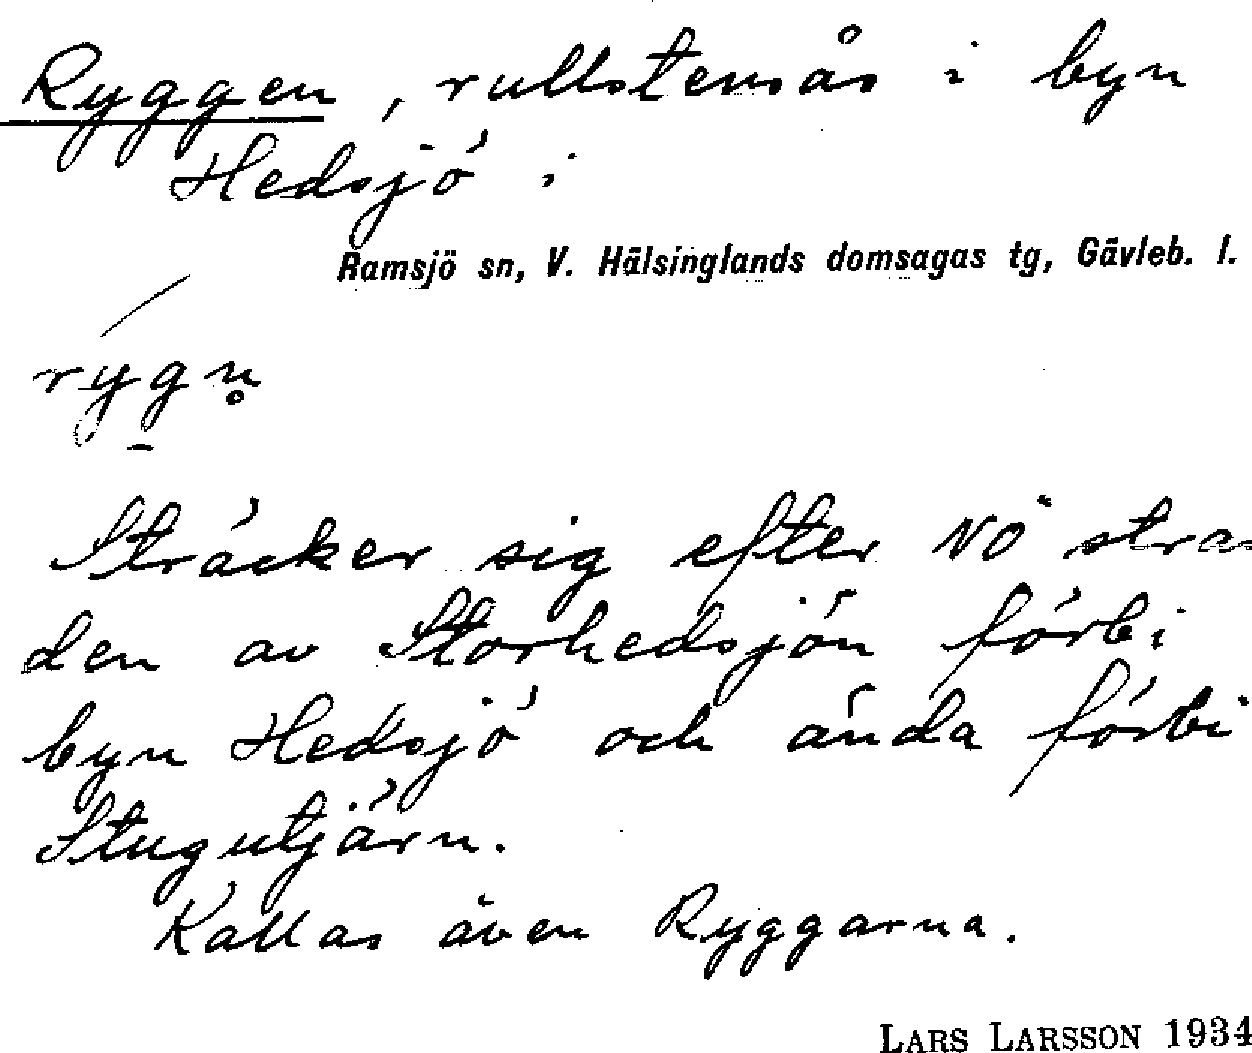 Ryggen, rullstensås i byn
Hedsjö i
Ramsjö sn, V. Hälsinglands domsagas tg, Gävleb. l.
rygn̥
Sträcker sig efter NÖ stran
den av Storhedsjön förbi
byn Hedsjö och ända förbi
Stugutjärn.
Kallas även Ryggarna.
LARS LARSSON 1934